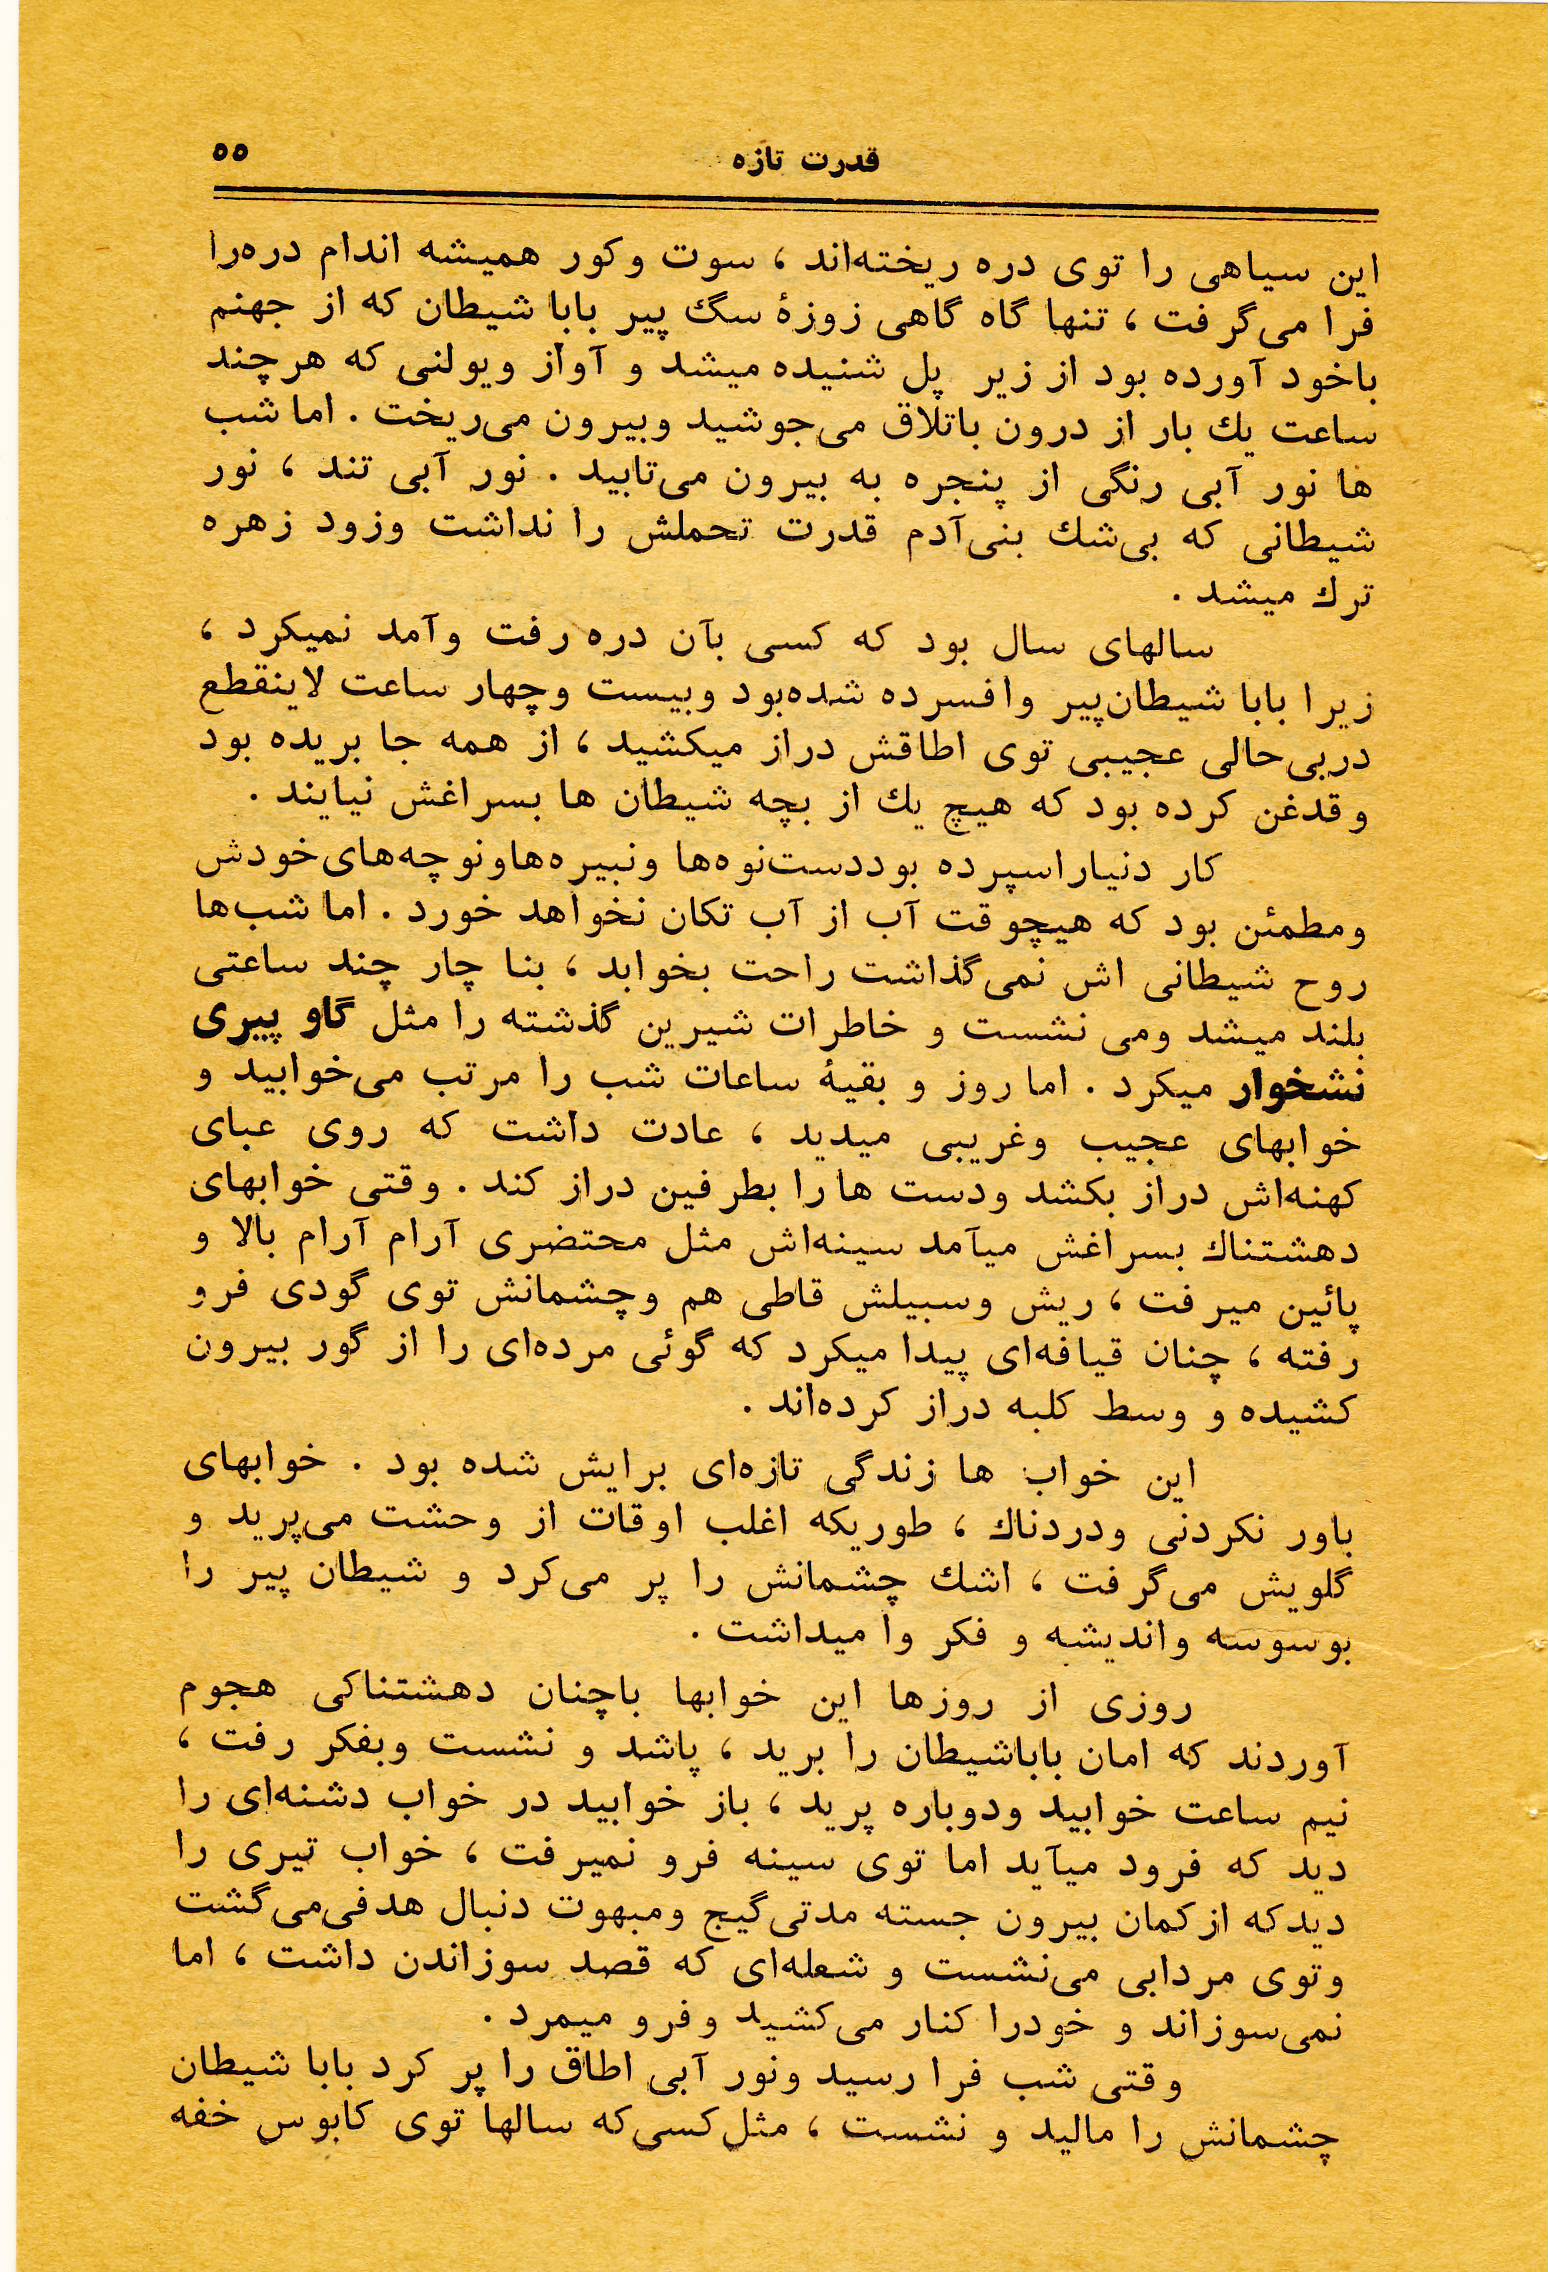 قدرت تازه ۵۵
این سیاهی را توی دره ریخته‌اند ، سوت وکور همیشه اندام دره‌را
فرا می‌گرفت ، تنها گاه گاهی زوزهٔ سگ پیر بابا شیطان که از جهنم
باخود آورده بود از زیر پل شنیده میشد و آواز ویولنی که هرچند
ساعت یك بار از درون باتلاق می‌جوشید وبیرون می‌ریخت . اما شب
ها نور آبی رنگی از پنجره به بیرون می‌تابید . نور آبی تند ، نور
شیطانی که بی‌شك بنی‌آدم قدرت تحملش را نداشت وزود زهره
ترك میشد .
سالهای سال بود که کسی بآن دره رفت وآمد نمیکرد ،
زیرا بابا شیطان‌پیر وافسرده شده‌بود وبیست وچهار ساعت لاینقطع
دربی‌حالی عجیبی توی اطاقش دراز میکشید ، از همه جا بریده بود
وقدغن کرده بود که هیچ یك از بچه شیطان ها بسراغش نیایند .
کار دنیاراسپرده بوددست‌نوه‌ها ونبیره‌هاونوچه‌های‌خودش
ومطمئن بود که هیچوقت آب از آب تکان نخواهد خورد . اما شب‌ها
روح شیطانی اش نمی‌گذاشت راحت بخوابد ، بنا چار چند ساعتی
بلند میشد ومی نشست و خاطرات شیرین گذشته را مثل گاو پیری
نشخوار میکرد . اما روز و بقیهٔ ساعات شب را مرتب می‌خوابید و
خوابهای عجیب وغریبی میدید ، عادت داشت که روی عبای
کهنه‌اش دراز بکشد ودست ها را بطرفین دراز کند . وقتی خوابهای
دهشتناك بسراغش میآمد سینه‌اش مثل محتضری آرام آرام بالا و
پائین میرفت ، ریش وسبیلش قاطی هم وچشمانش توی گودی فرو
رفته ، چنان قیافه‌ای پیدا میکرد که گوئی مرده‌ای را از گور بیرون
کشیده و وسط کلبه دراز کرده‌اند .
این خواب ها زندگی تازه‌ای برایش شده بود . خوابهای
باور نکردنی ودردناك ، طوریکه اغلب اوقات از وحشت می‌پرید و
گلویش می‌گرفت ، اشك چشمانش را پر می‌کرد و شیطان پیر را
بوسوسه واندیشه و فکر وا میداشت .
روزی از روزها این خوابها باچنان دهشتناکی هجوم
آوردند که امان باباشیطان را برید ، پاشد و نشست وبفکر رفت ،
نیم ساعت خوابید ودوباره پرید ، باز خوابید در خواب دشنه‌ای را
دید که فرود میآید اما توی سینه فرو نمیرفت ، خواب تیری را
دیدکه ازکمان بیرون جسته مدتی‌گیج ومبهوت دنبال هدفی‌می‌گشت
وتوی مردابی می‌نشست و شعله‌ای که قصد سوزاندن داشت ، اما
نمی‌سوزاند و خودرا کنار می‌کشید وفرو میمرد .
وقتی شب فرا رسید ونور آبی اطاق را پر کرد بابا شیطان
چشمانش را مالید و نشست ، مثل‌کسی‌که سالها توی کابوس خفه